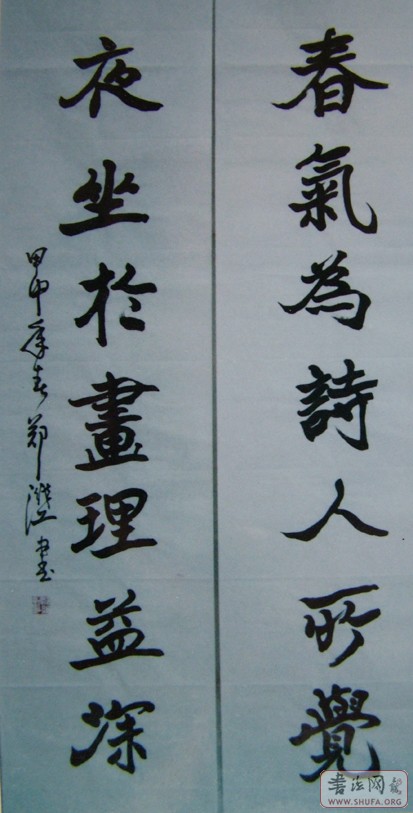 春氣為詩人所覺
夜坐於畫理益深
甲申年春郑书
書法网
WWW.SHUFA.ORG